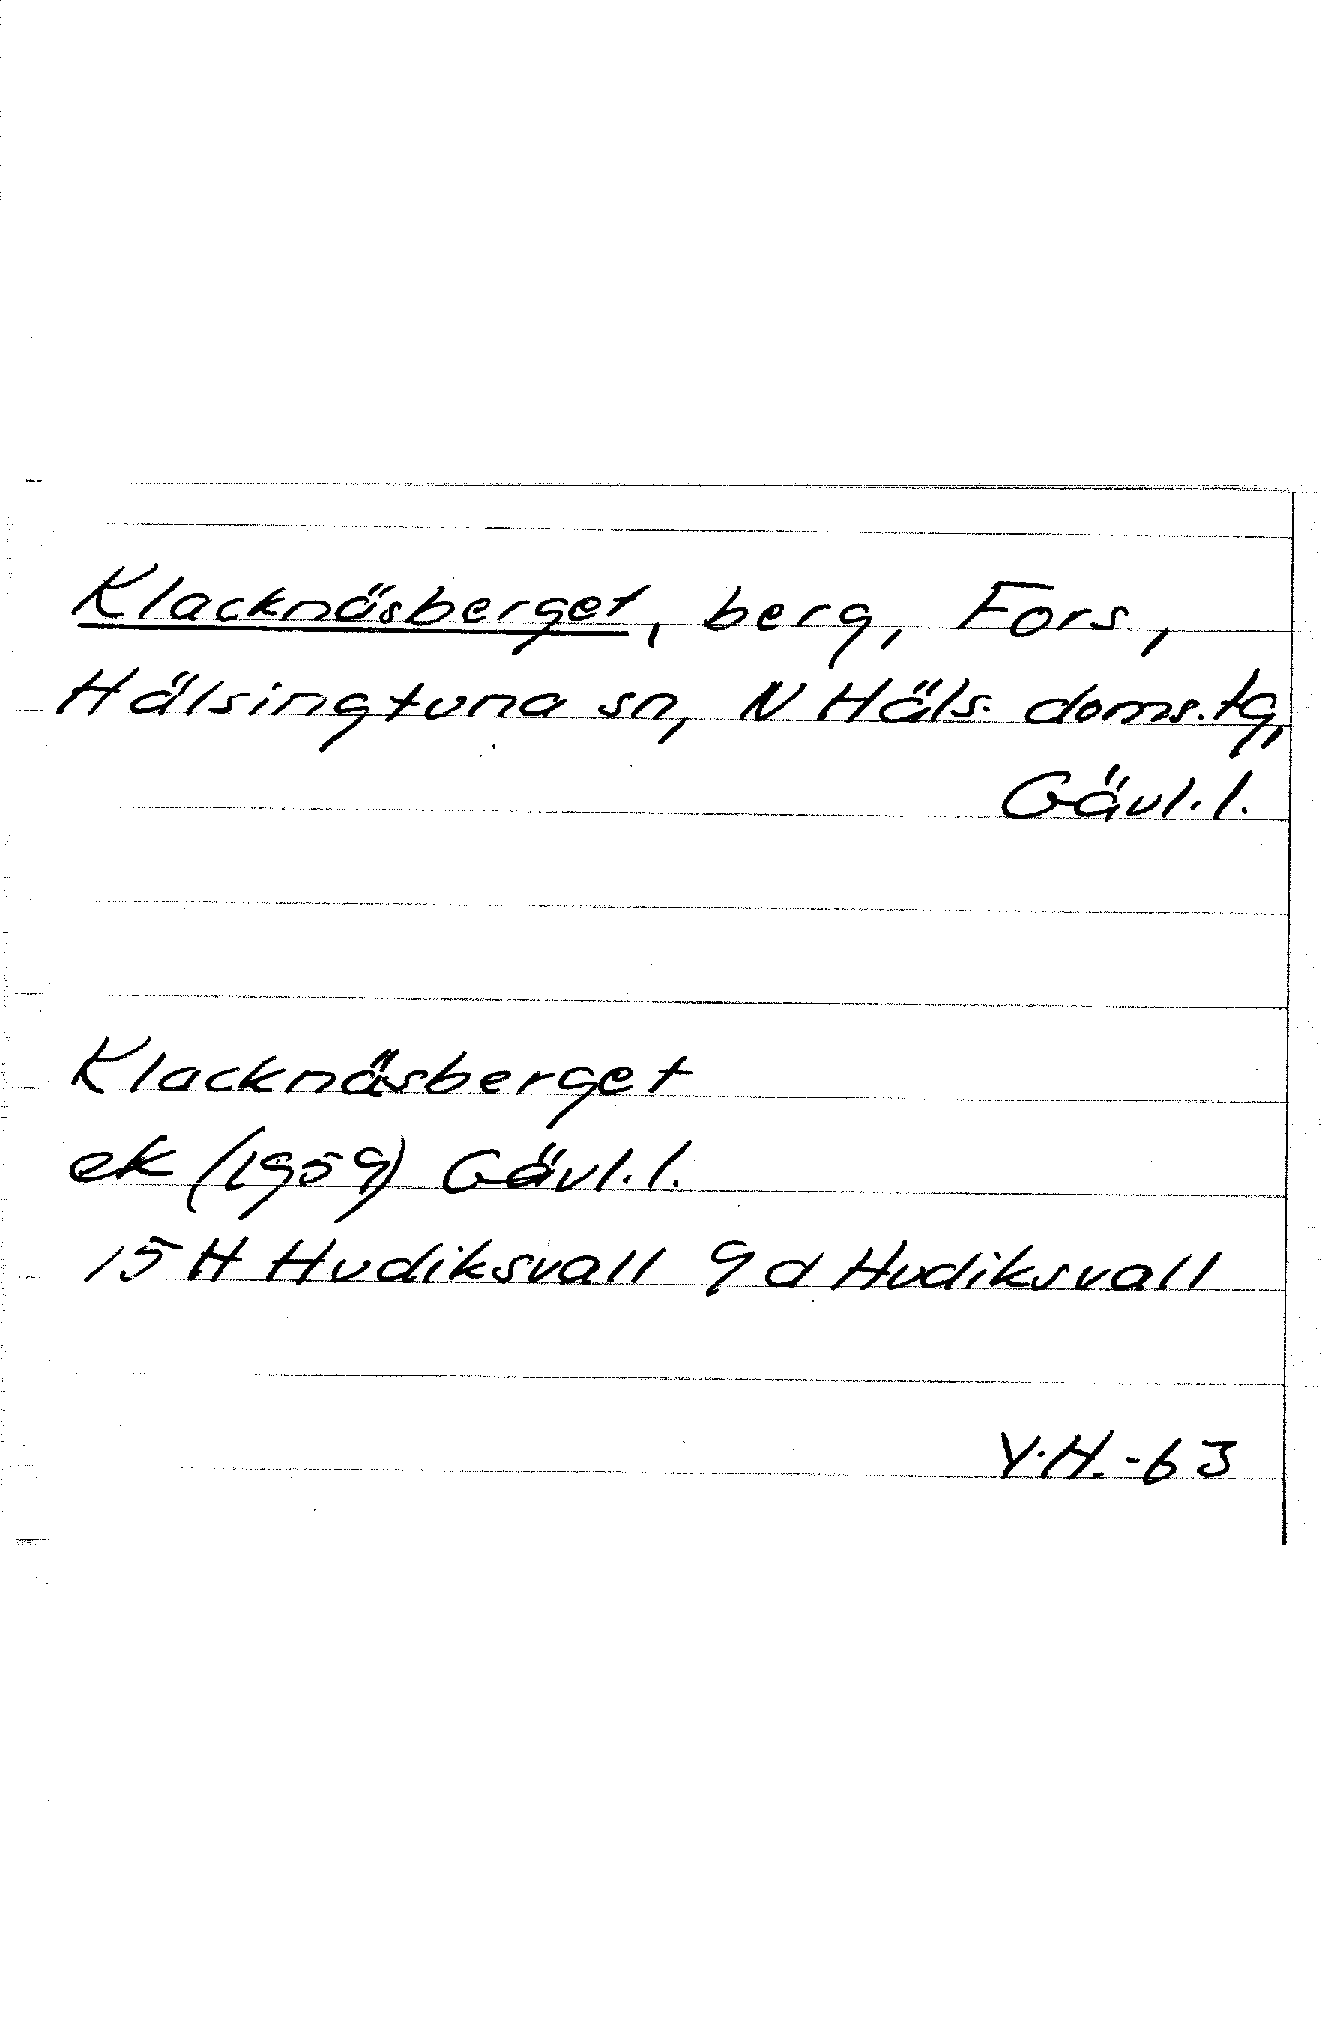 Klacknäsberget, berg, Fors,
Hälsingtuna sn, N Häls. doms.tg,
Gävl.l.
Klacknäsberget
ek (1959) Gävl.l.
15 H Hudiksvall 9 d Hudiksvall
Y.H.-63